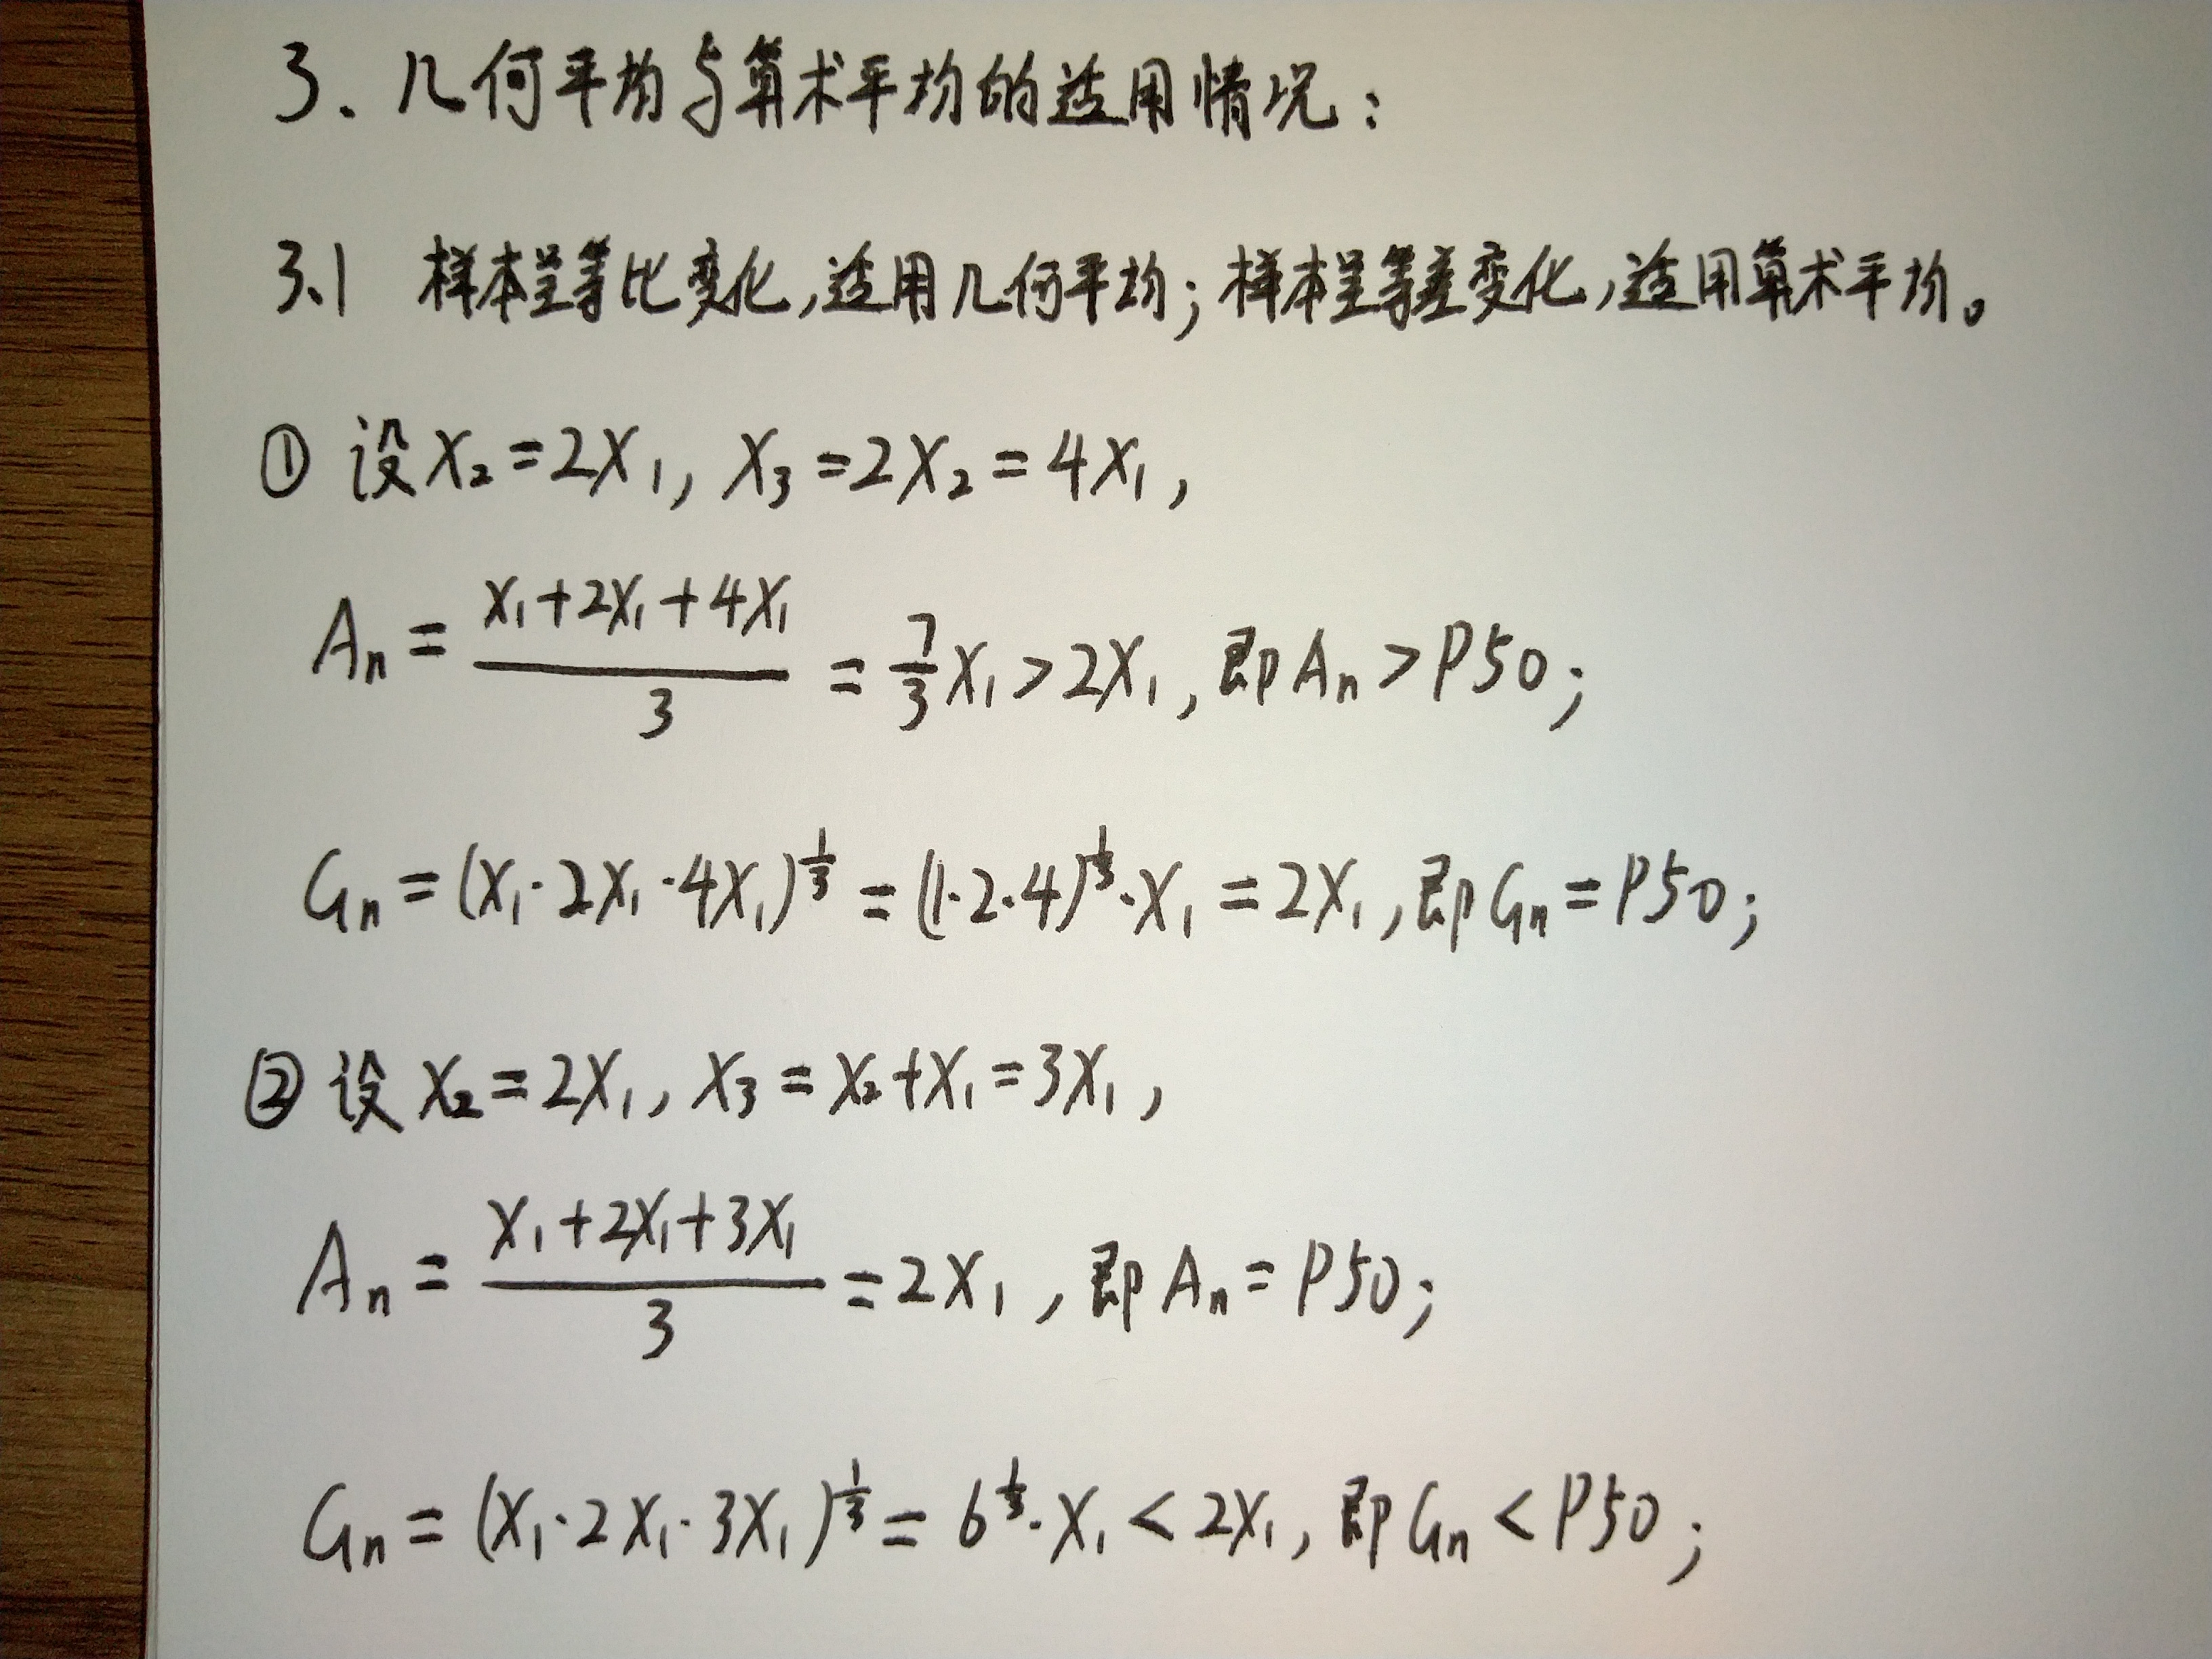 3、几何平均与算术平均的适用情况：
3.1 样本呈等比变化,适用几何平均；样本呈等差变化,适用算术平均。
① 设X₂=2X₁, X₃=2X₂=4X₁,
Aₙ = (X₁+2X₁+4X₁)/3 = 7/3 X₁ > 2X₁, 即 Aₙ > P50;
Gₙ = (X₁·2X₁·4X₁)^(1/3) = (1·2·4)^(1/3)·X₁ = 2X₁, 即 Gₙ = P50;
② 设 X₂=2X₁, X₃=X₂+X₁=3X₁,
Aₙ = (X₁+2X₁+3X₁)/3 = 2X₁, 即 Aₙ = P50;
Gₙ = (X₁·2X₁·3X₁)^(1/3) = 6^(1/3)·X₁ < 2X₁, 即 Gₙ < P50;